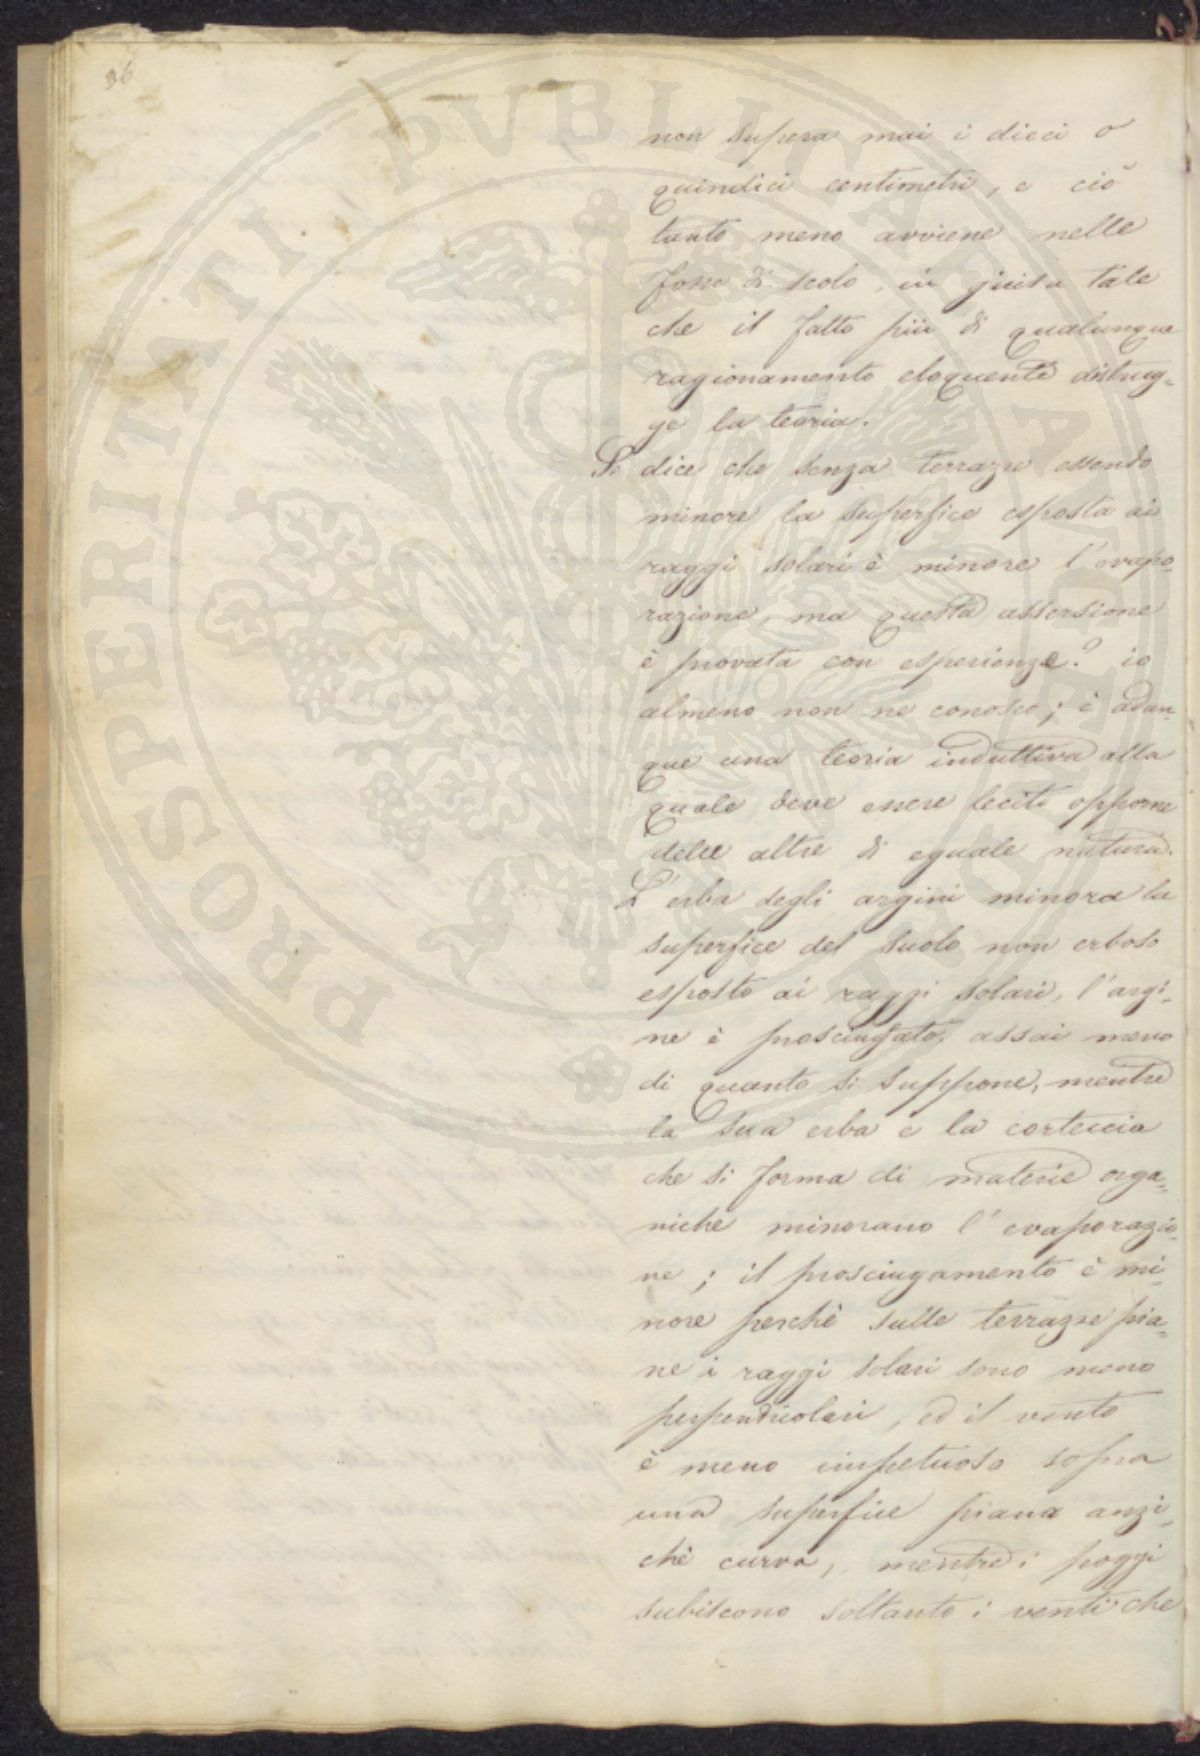 36
non supera mai i dieci o
quindici centimetri, e ciò
tanto meno avviene nelle
fosse di scolo, in guisa tale
che il fatto più di qualunque
ragionamento eloquente distrug-
ge la teoria.
Si dice che senza terrazze essendo
minore la superfice esposta ai
raggi solari è minore l'evapo-
razione, ma questa asserzione
è provata con esperienze? io
almeno non ne conosco; è adun-
que una teoria induttiva alla
quale deve essere lecito opporne
delle altre di eguale natura.
L'erba degli argini minora la
superfice del suolo non erboso
esposto ai raggi solari, l'argi-
ne è prosciugato assai meno
di quanto si suppone, mentre
la sua erba e la corteccia
che si forma di materie orga-
niche minorano l'evaporazio-
ne; il prosciugamento è mi-
nore perchè sulle terrazze pia-
ne i raggi solari sono meno
perpendicolari, ed il vento
è meno impetuoso sopra
una superfice piana anzi-
chè curva, mentre i poggi
subiscono soltanto i venti che
PROSPERITATI PVBLICAE AVGENDAE